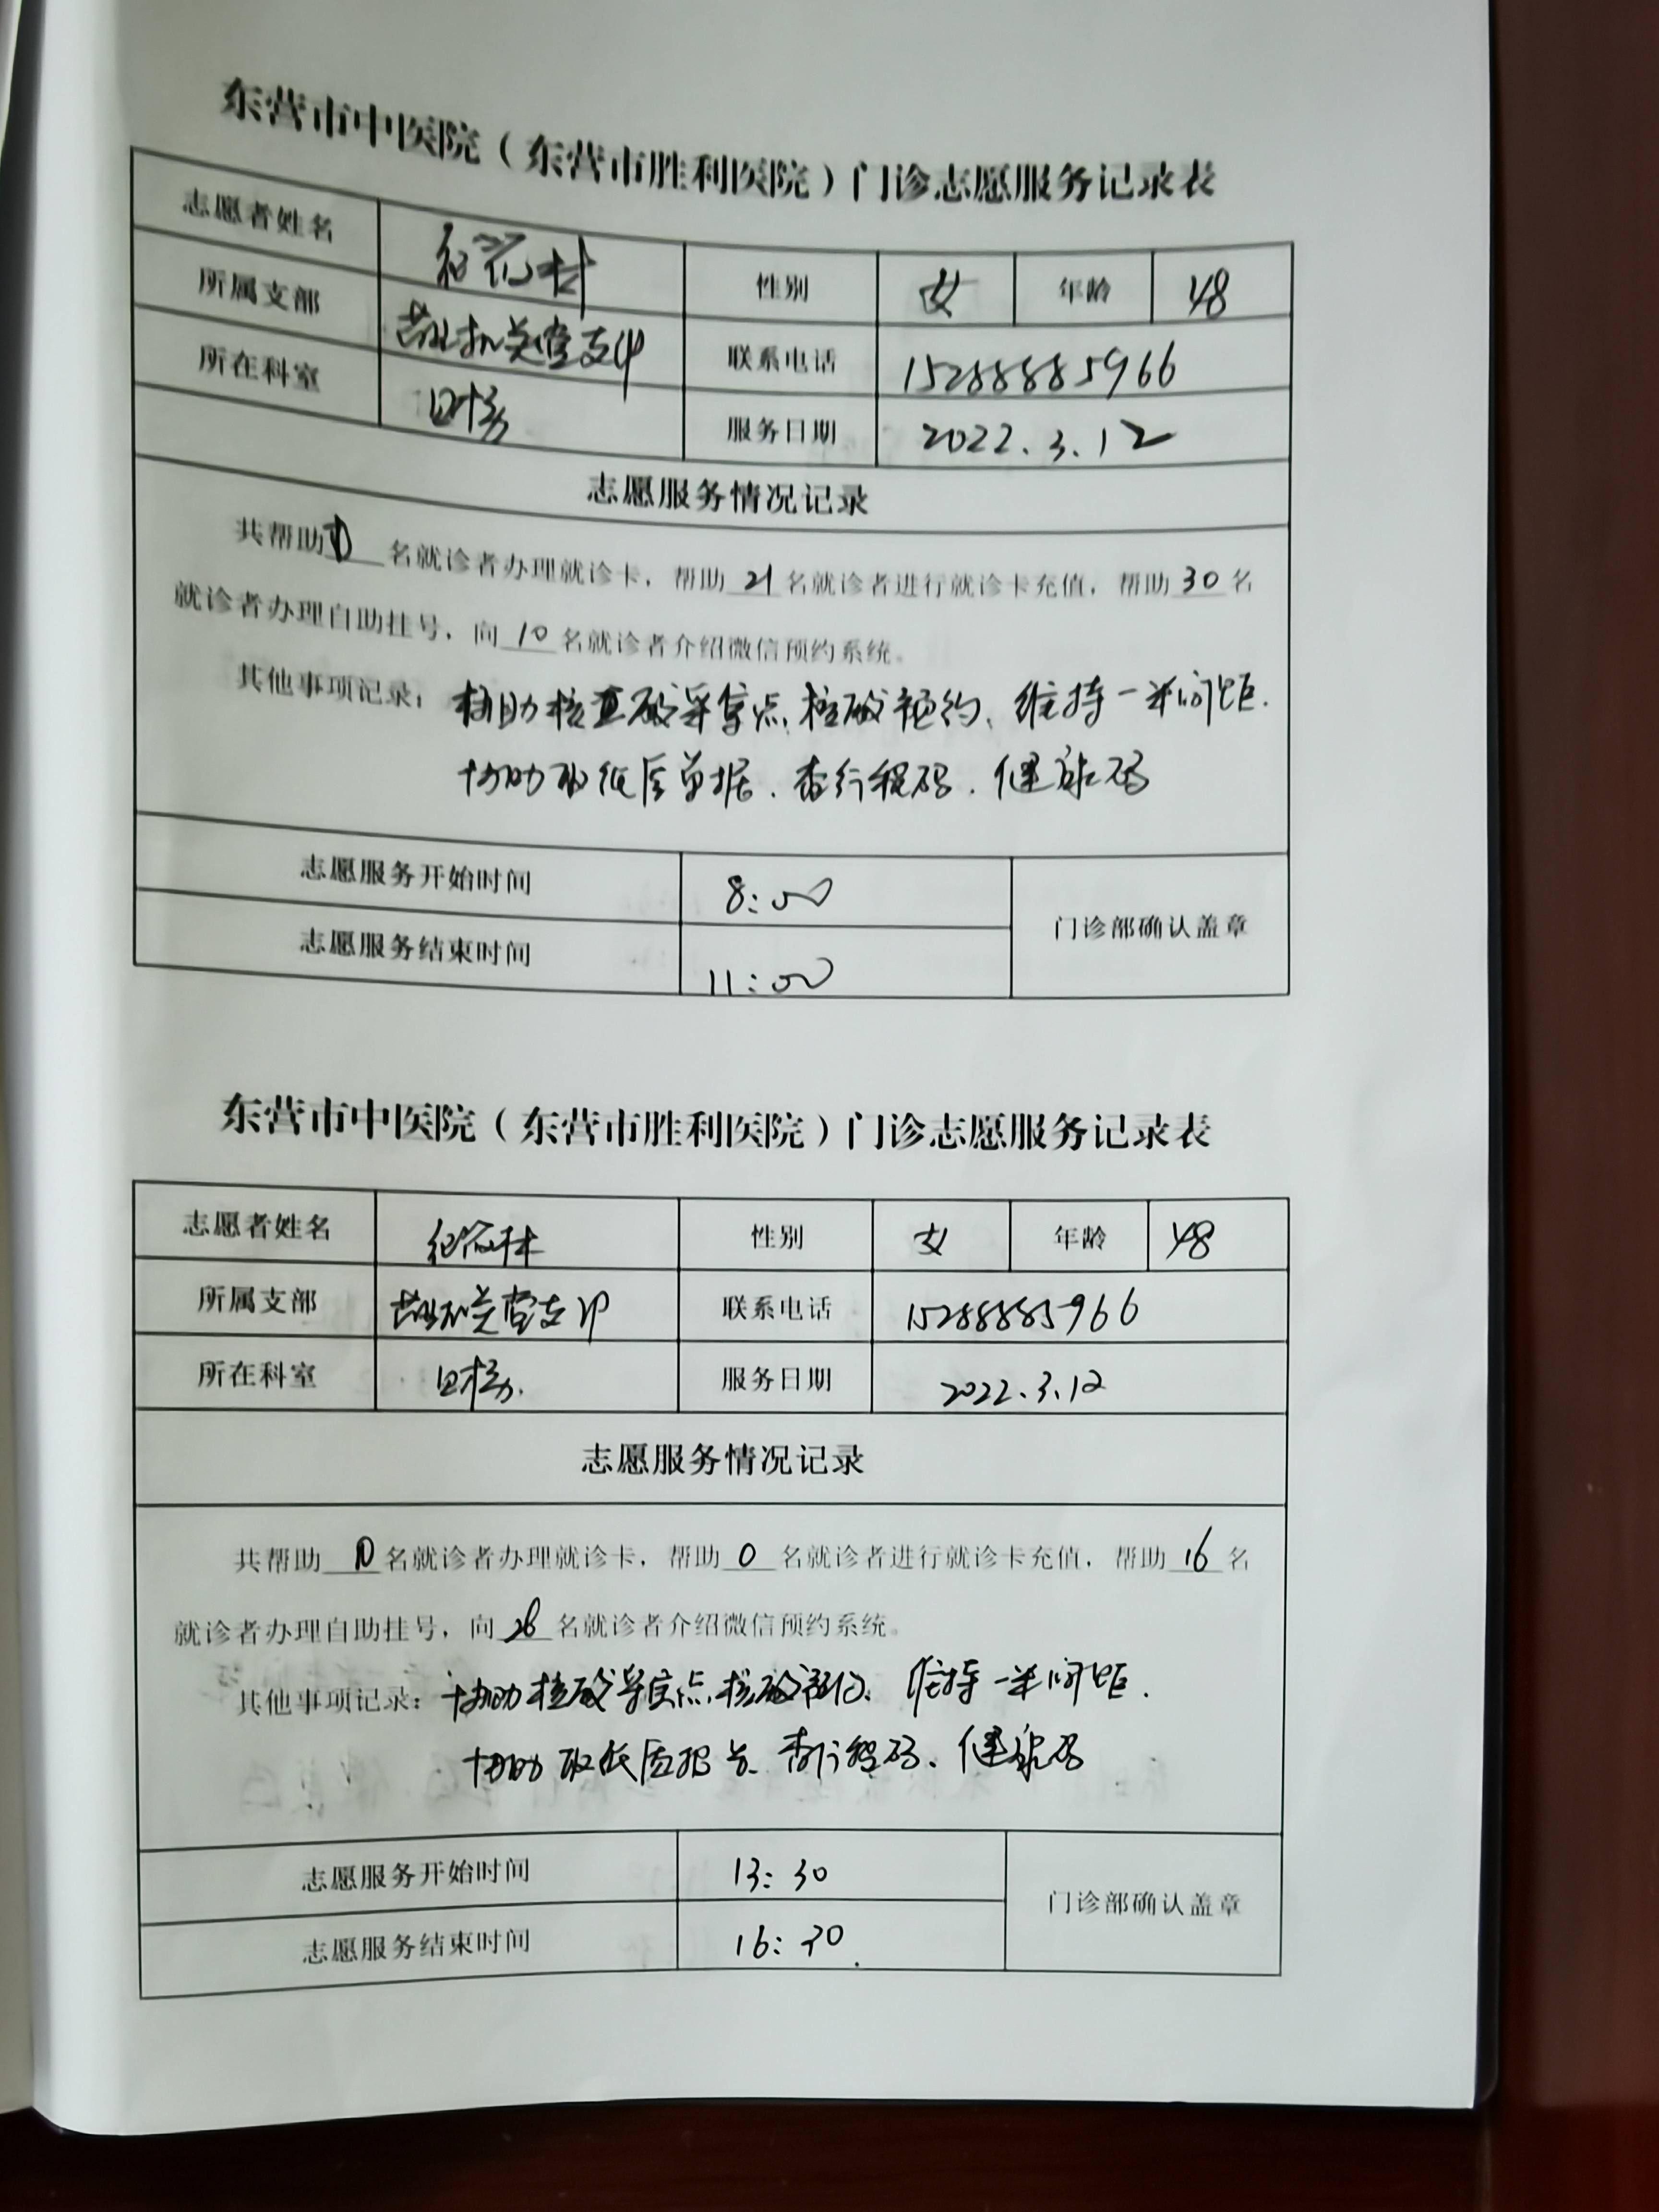 东营市中医院（东营市胜利医院）门诊志愿服务记录表
志愿者姓名 性别 女 年龄 48
所属支部 机关党支部 联系电话 15288885966
所在科室 服务日期 2022.3.12
志愿服务情况记录
共帮助 名就诊者办理就诊卡，帮助 21 名就诊者进行就诊卡充值，帮助 30 名
就诊者办理自助挂号，向 10 名就诊者介绍微信预约系统。
其他事项记录： 核酸采集点、核酸预约、维持一米间距.
协助取纸质单据、查行程码、健康码
志愿服务开始时间 8:00
门诊部确认盖章
志愿服务结束时间 11:00
东营市中医院（东营市胜利医院）门诊志愿服务记录表
志愿者姓名 性别 女 年龄 48
所属支部 机关党支部 联系电话 15288885966
所在科室 服务日期 2022.3.12
志愿服务情况记录
共帮助 10 名就诊者办理就诊卡，帮助 0 名就诊者进行就诊卡充值，帮助 16 名
就诊者办理自助挂号，向 名就诊者介绍微信预约系统。
其他事项记录：协助核酸采集点、核酸预约、维持一米间距.
协助取纸质报告、查行程码、健康码
志愿服务开始时间 13:30
门诊部确认盖章
志愿服务结束时间 16:30